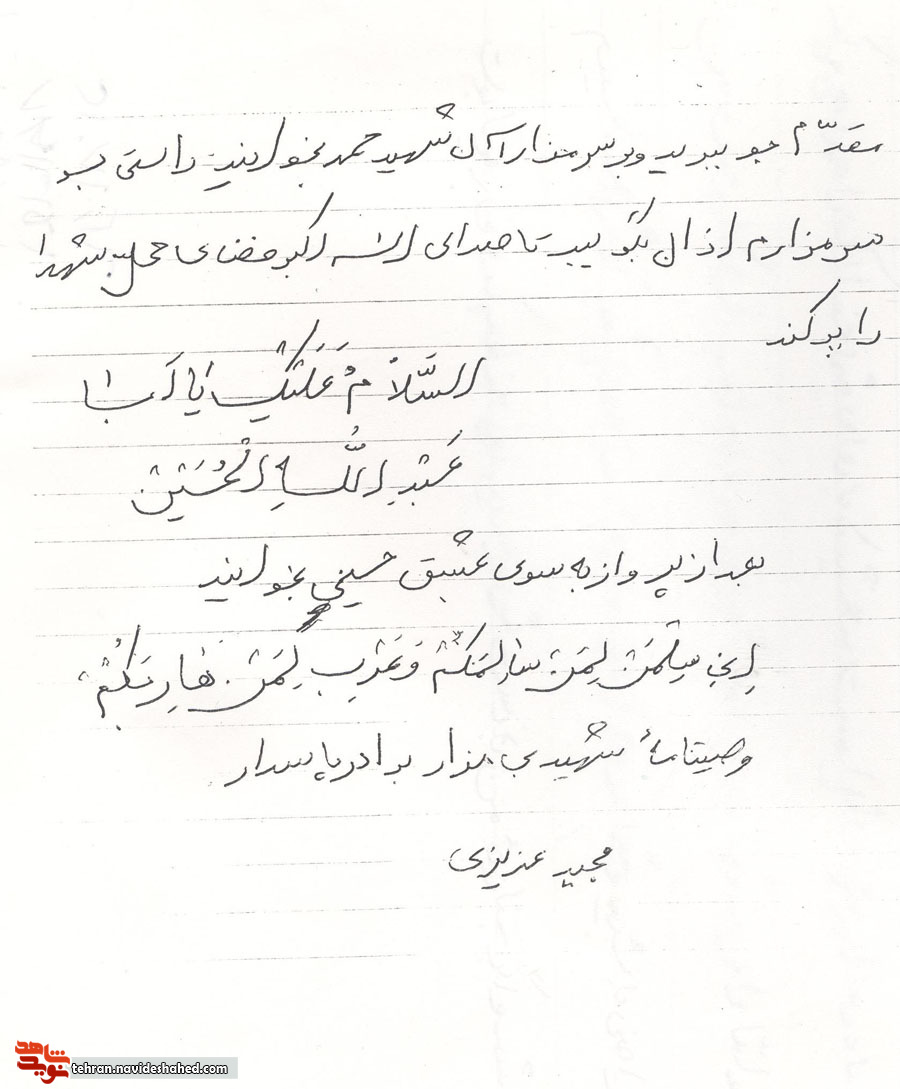 مقدّم جو ببرید و بر سر مزار آن شهید حمد بخوانید راستی بر
سر مزارم اذان بگویید تا صدای الله اکبر فضای محل شهدا
را پر کند
السَّلامُ عَلَیْکَ یا اَبا
عَبْدِ اللّهِ الْحُسَیْن
بعد از پرواز به سوی عشق حسینی بخوانید
اِنی سِلْمٌ لِمَنْ سٰالَمَکُمْ وَ حَرْب لِمَنْ حٰارَبَکُمْ
وصیتنامهٔ شهیدی بی‌مزار برادر پاسدار
مجید عزیزی
شاهد
نوید
tehran.navideshahed.com